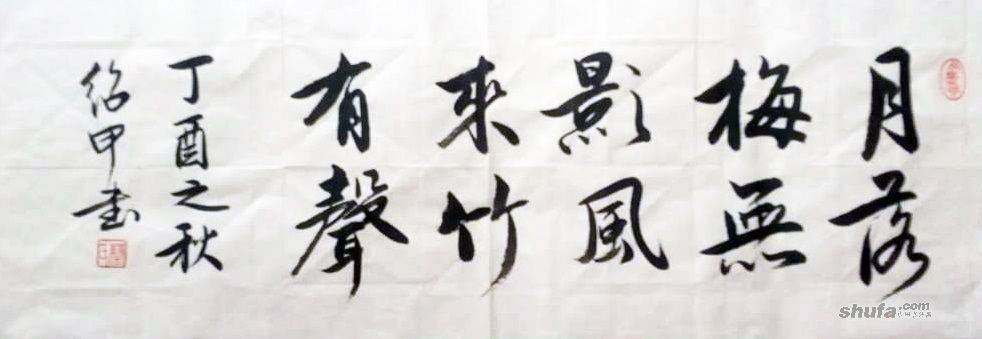 月落
梅無
影風
來竹
有聲
丁酉之秋
紹甲書
shufa.com